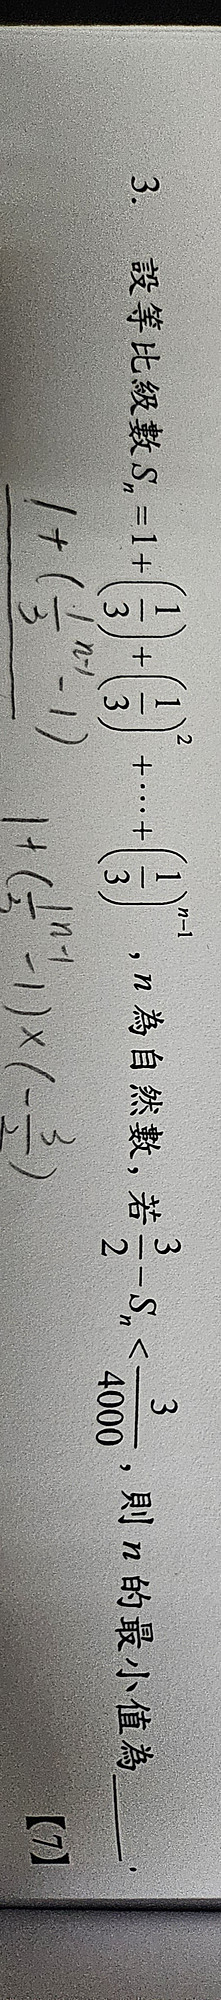 3. 設等比級數 Sₙ = 1 + (1/3) + (1/3)² + ⋯ + (1/3)ⁿ⁻¹ , n 為自然數, 若 3/2 − Sₙ < 3/4000 , 則 n 的最小值為______.
【7】
1 + (1/3ⁿ⁻¹ − 1)   1 + (1/3ⁿ⁻¹ − 1) × (−3/2)